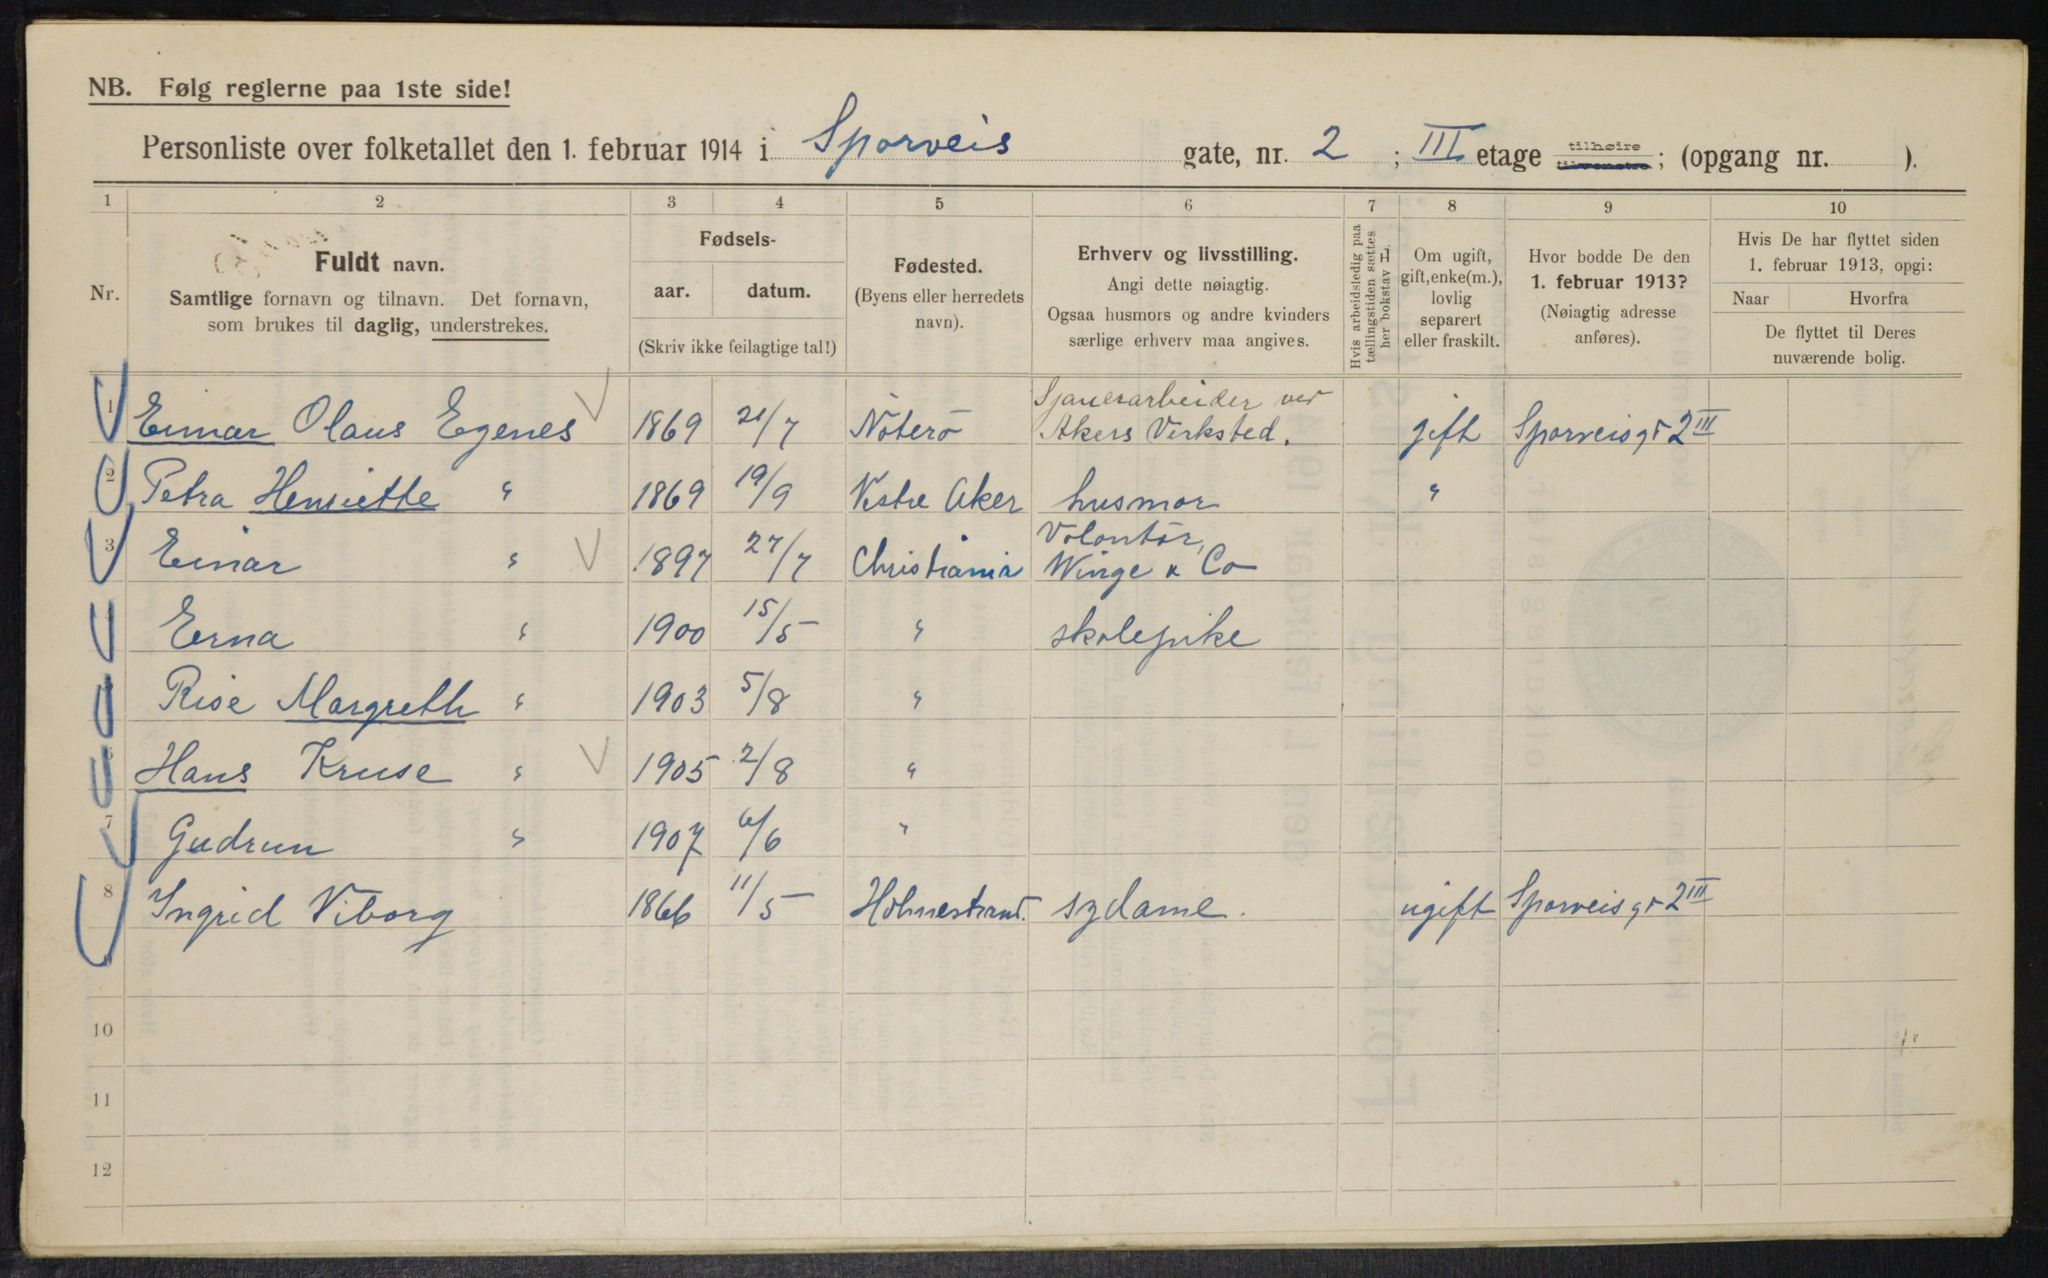 NB. Følg reglerne paa 1ste side!
Personliste over folketallet den 1. februar 1914 i Sporveis gate, nr. 2 ; III etage tilhøire tilvenstre; (opgang nr. ).
1 2 3 4 5 6 7 8 9 10
Nr.
Fuldt navn.
Samtlige fornavn og tilnavn. Det fornavn,
som brukes til daglig, understrekes.
Fødsels-
aar. datum.
(Skriv ikke feilagtige tal!)
Fødested.
(Byens eller herredets
navn).
Erhverv og livsstilling.
Angi dette nøiagtig.
Ogsaa husmors og andre kvinders
særlige erhverv maa angives.
Hvis arbeidsledig paa
tællingstiden sættes
her bokstav H.
Om ugift,
gift, enke(m.),
lovlig
separert
eller fraskilt.
Hvor bodde De den
1. februar 1913?
(Nøiagtig adresse
anføres).
Hvis De har flyttet siden
1. februar 1913, opgi:
Naar Hvorfra
De flyttet til Deres
nuværende bolig.
1 Einar Olaus Egenes 1869 21/7 Nøterø Sjauerarbeider ved Akers Verksted. gift Sporveisgt 2 III
2 Petra Henriette " 1869 19/9 Vestre Aker husmor "
3 Einar " 1897 27/7 Christiania Volontør, Winge & Co
4 Erna " 1900 15/5 " skolepike
5 Rise Margreth " 1903 5/8 "
6 Hans Kruse " 1905 2/8 "
7 Gudrun " 1907 6/6 "
8 Ingrid Viborg 1866 11/5 Holmestrand. sydame. ugift Sporveisgt 2 III
9
10
11
12